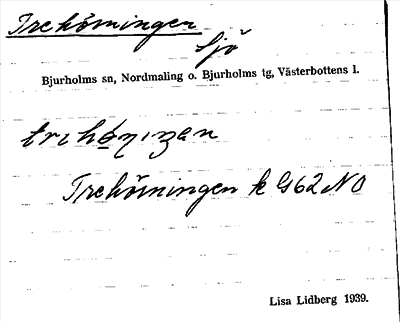 Trehörningen
Sjö
Bjurholms sn, Nordmaling o. Bjurholms tg, Västerbottens l.
Trehörningen k G62 NO
Lisa Lidberg 1939.